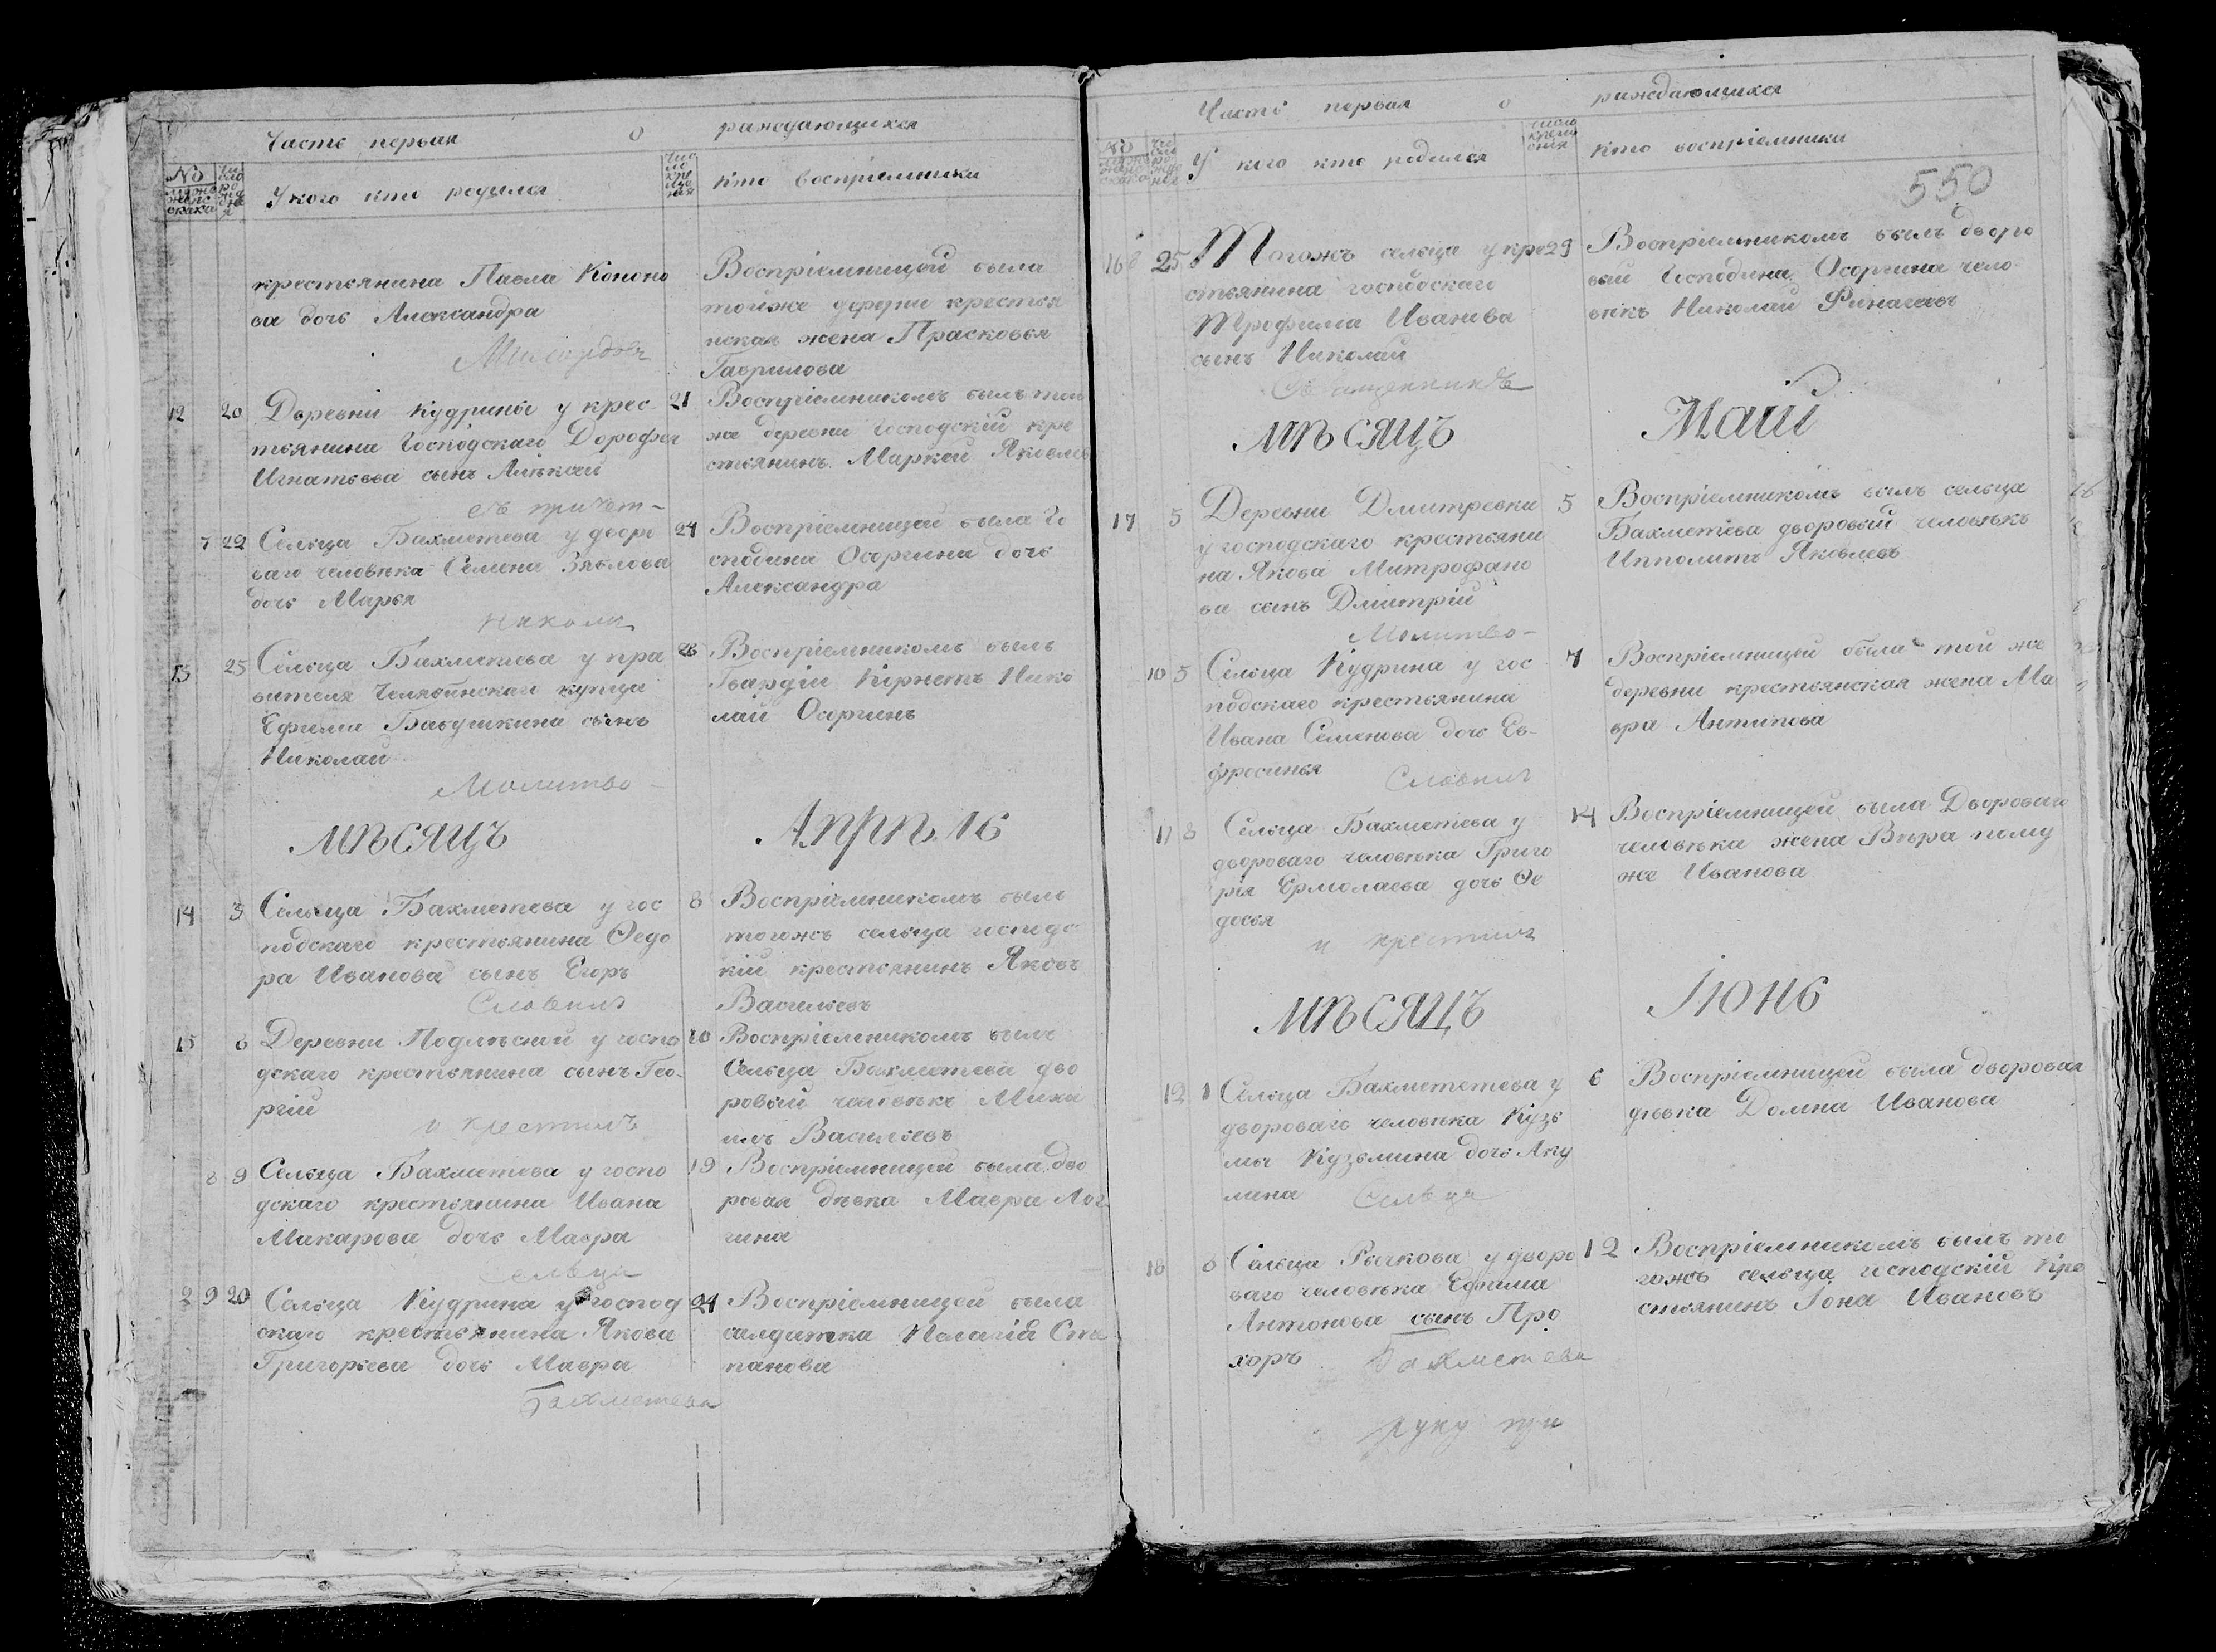 Часть первая о раждающихся
№ У кого кто родился Кто воспріемники
крестьянина Павла Кононо
ва дочь Александра
Воспріемницой была
тойже деревни крестьян
нская жена Прасковья
Гаврилова
12 20 Деревни Кудрины у крес
тьянина Господскаго Дорофея
Игнатьева сынъ Алѣксѣй
съ причет-
21 Воспріемникомъ былъ той
же деревни Господскій кре
стьянинъ Маркей Яковлев
7 22 Сельца Бахметева у дворо
ваго человѣка Семена Зяблова
дочь Марья
24 Воспріемницей была Го
сподина Осоргина дочь
Александра
13 25 Сельца Бахметева у пра
вителя Челябинскаго купца
Ефима Бабушкина сынъ
Николай
Молитво-
26 Воспріемникомъ былъ
Гвардіи Корнетъ Нико
лай Осоргинъ
мѣсяцъ Апрѣль
14 3 Сельца Бахметева у гос
подскаго крестьянина Ѳедо
ра Иванова сынъ Егоръ
Словилъ
8 Воспріемникомъ былъ
тогожъ сельца господс
кій крестьянинъ Яковъ
Васильевъ
15 6 Деревни Подлѣсной у госпо
дскаго крестьянина сынъ Гео-
ргій
и крестилъ
10 Воспріемникомъ былъ
Сельца Бахметева дво
ровый человѣкъ Миха
илъ Васильевъ
8 9 Сельца Бахметева у госпо
дскаго крестьянина Ивана
Макарова дочь Мавра
сельца
19 Воспріемницей была дво
ровая дѣвка Мавра Лог
гина
9 20 Сельца Кудрина у господ
скаго крестьянина Якова
Григорьева дочь Мавра
Бахметева
24 Воспріемницей была
салдатка Палагія Сте
панова
Часть первая о раждающихся
№ У кого кто родился Кто воспріемники
550
16 25 Тогожъ сельца у кре
стьянина господскаго
Трофима Иванова
сынъ Николай
Священникъ
29 Воспріемникомъ былъ дворо
вый Господина Осоргина чело
вѣкъ Николай Финагеевъ
мѣсяцъ Маій
17 5 Деревни Дмитревки
у господскаго крестьяни
на Якова Митрофано
ва сынъ Дмитрій
Молитво-
5 Воспріемникомъ былъ сельца
Бахметева дворовый человѣкъ
Ипполитъ Яковлевъ
10 5 Сельца Кудрина у гос
подскаго крестьянина
Ивана Семенова дочь Ев-
фросинья
Словилъ
7 Воспріемницей была той же
деревни крестьянская жена Ма
вра Антипова
11 8 Сельца Бахметева у
двороваго человѣка Григо
рія Ермолаева дочь Ѳе
досья
и крестилъ
14 Воспріемницей была Двороваго
человѣка жена Вѣра тому
же Иванова
мѣсяцъ Іюнь
12 1 Сельца Бахмететева у
двороваго человѣка Кузь
мы Кузьмина дочь Аку
лина
Сельца
6 Воспріемницей была дворовая
дѣвка Домна Иванова
18 8 Сельца Рычкова у дворо
ваго человѣка Ефима
Антонова сынъ Про
хоръ
Бахметева
12 Воспріемникомъ былъ то
гожъ сельца господскій Кре
стьянинъ Іона Ивановъ
руку при